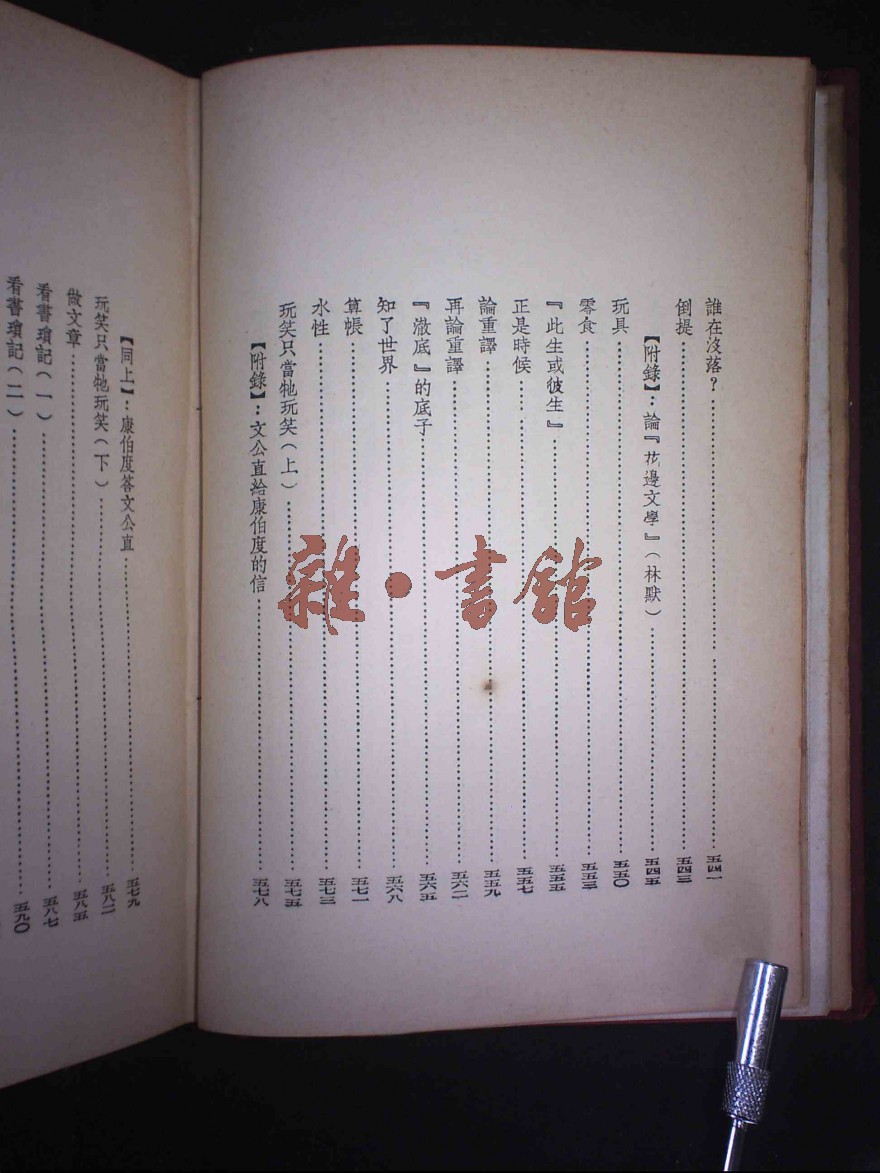 誰在没落？……五四一
倒提……五四三
【附錄】：論『花邊文學』（林默）……五四五
玩具……五五〇
零食……五五三
『此生或彼生』……五五五
正是時候……五五七
論重譯……五五九
再論重譯……五六二
『澈底』的底子……五六五
知了世界……五六八
算帳……五七一
水性……五七三
玩笑只當牠玩笑（上）……五七五
【附錄】：文公直給康伯度的信……五七八
【同上】：康伯度答文公直……五七九
玩笑只當牠玩笑（下）……五八二
做文章……五八五
看書瑣記（一）……五八七
看書瑣記（二）……五九〇
雜·書館